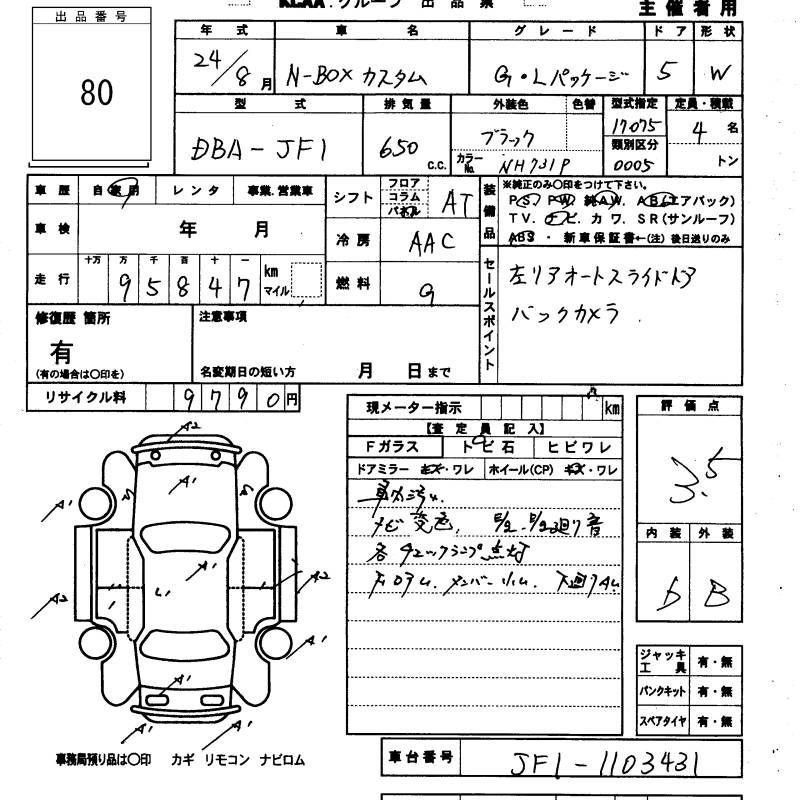 KCAA.グループ 出品票
主催者用
出品番号
80
年式 車名 グレード ドア 形状
24/8月 N-BOX カスタム G・Lパッケージ 5 W
型式 排気量 外装色 色替 型式指定 定員・積載
DBA-JF1 650 c.c. ブラック 17075 4 名
カラーNo. NH731P 類別区分 0005 トン
車歴 自家用 レンタ 事業.営業車
シフト フロア コラム パネル AT
装備品 ※純正のみ〇印をつけて下さい。
PS. PW. 純AW. AB(エアバック)
TV. ナビ. カワ. SR(サンルーフ)
ABS ・ 新車保証書←(注) 後日送りのみ
車検 年 月
冷房 AAC
走行 十万 万 千 百 十 一
95847 km マイル
燃料 G
セールスポイント
左リアオートスライドドア
バックカメラ
修復歴 箇所
有
(有の場合は〇印を)
注意事項
名変期日の短い方 月 日まで
リサイクル料 9790円
現メーター指示 km
【査定員記入】
Fガラス トビ石 ヒビワレ
ドアミラー キズ・ワレ ホイール(CP) キズ・ワレ
車内汚れ.
ナビ変色.
各チェックランプ点灯
評価点
3.5
内装 外装
D B
A2
A1
A1
A1
A2
A2
A1
A1
A1
A1
ジャッキ工具 有・無
パンクキット 有・無
スペアタイヤ 有・無
事務局預り品は〇印 カギ リモコン ナビロム
車台番号 JF1-1103431